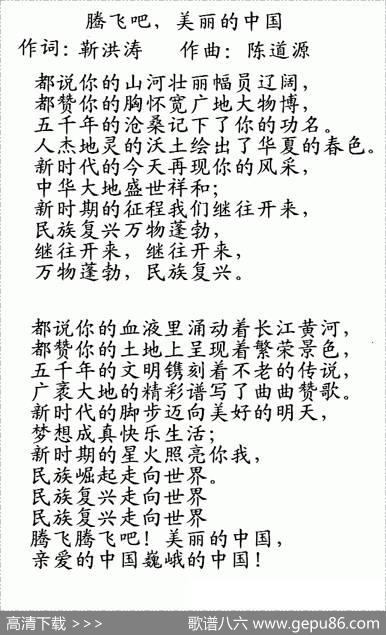 腾飞吧，美丽的中国
作词：靳洪涛 作曲：陈道源
都说你的山河壮丽幅员辽阔，
都赞你的胸怀宽广地大物博，
五千年的沧桑记下了你的功名。
人杰地灵的沃土绘出了华夏的春色。
新时代的今天再现你的风采，
中华大地盛世祥和；
新时期的征程我们继往开来，
民族复兴万物蓬勃，
继往开来，继往开来，
万物蓬勃，民族复兴。
都说你的血液里涌动着长江黄河，
都赞你的土地上呈现着繁荣景色，
五千年的文明镌刻着不老的传说，
广袤大地的精彩谱写了曲曲赞歌。
新时代的脚步迈向美好的明天，
梦想成真快乐生活；
新时期的星火照亮你我，
民族崛起走向世界。
民族复兴走向世界
民族复兴走向世界
腾飞腾飞吧！美丽的中国，
亲爱的中国巍峨的中国！
高清下载 >>>
歌谱八六 www.gepu86.com